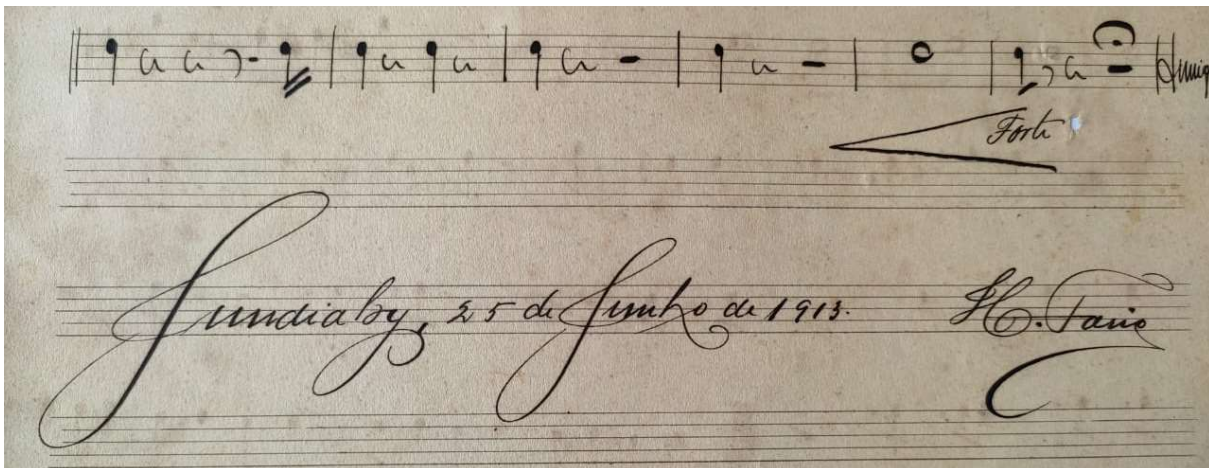 Forte
Jundiahy, 25 de Junho de 1913.